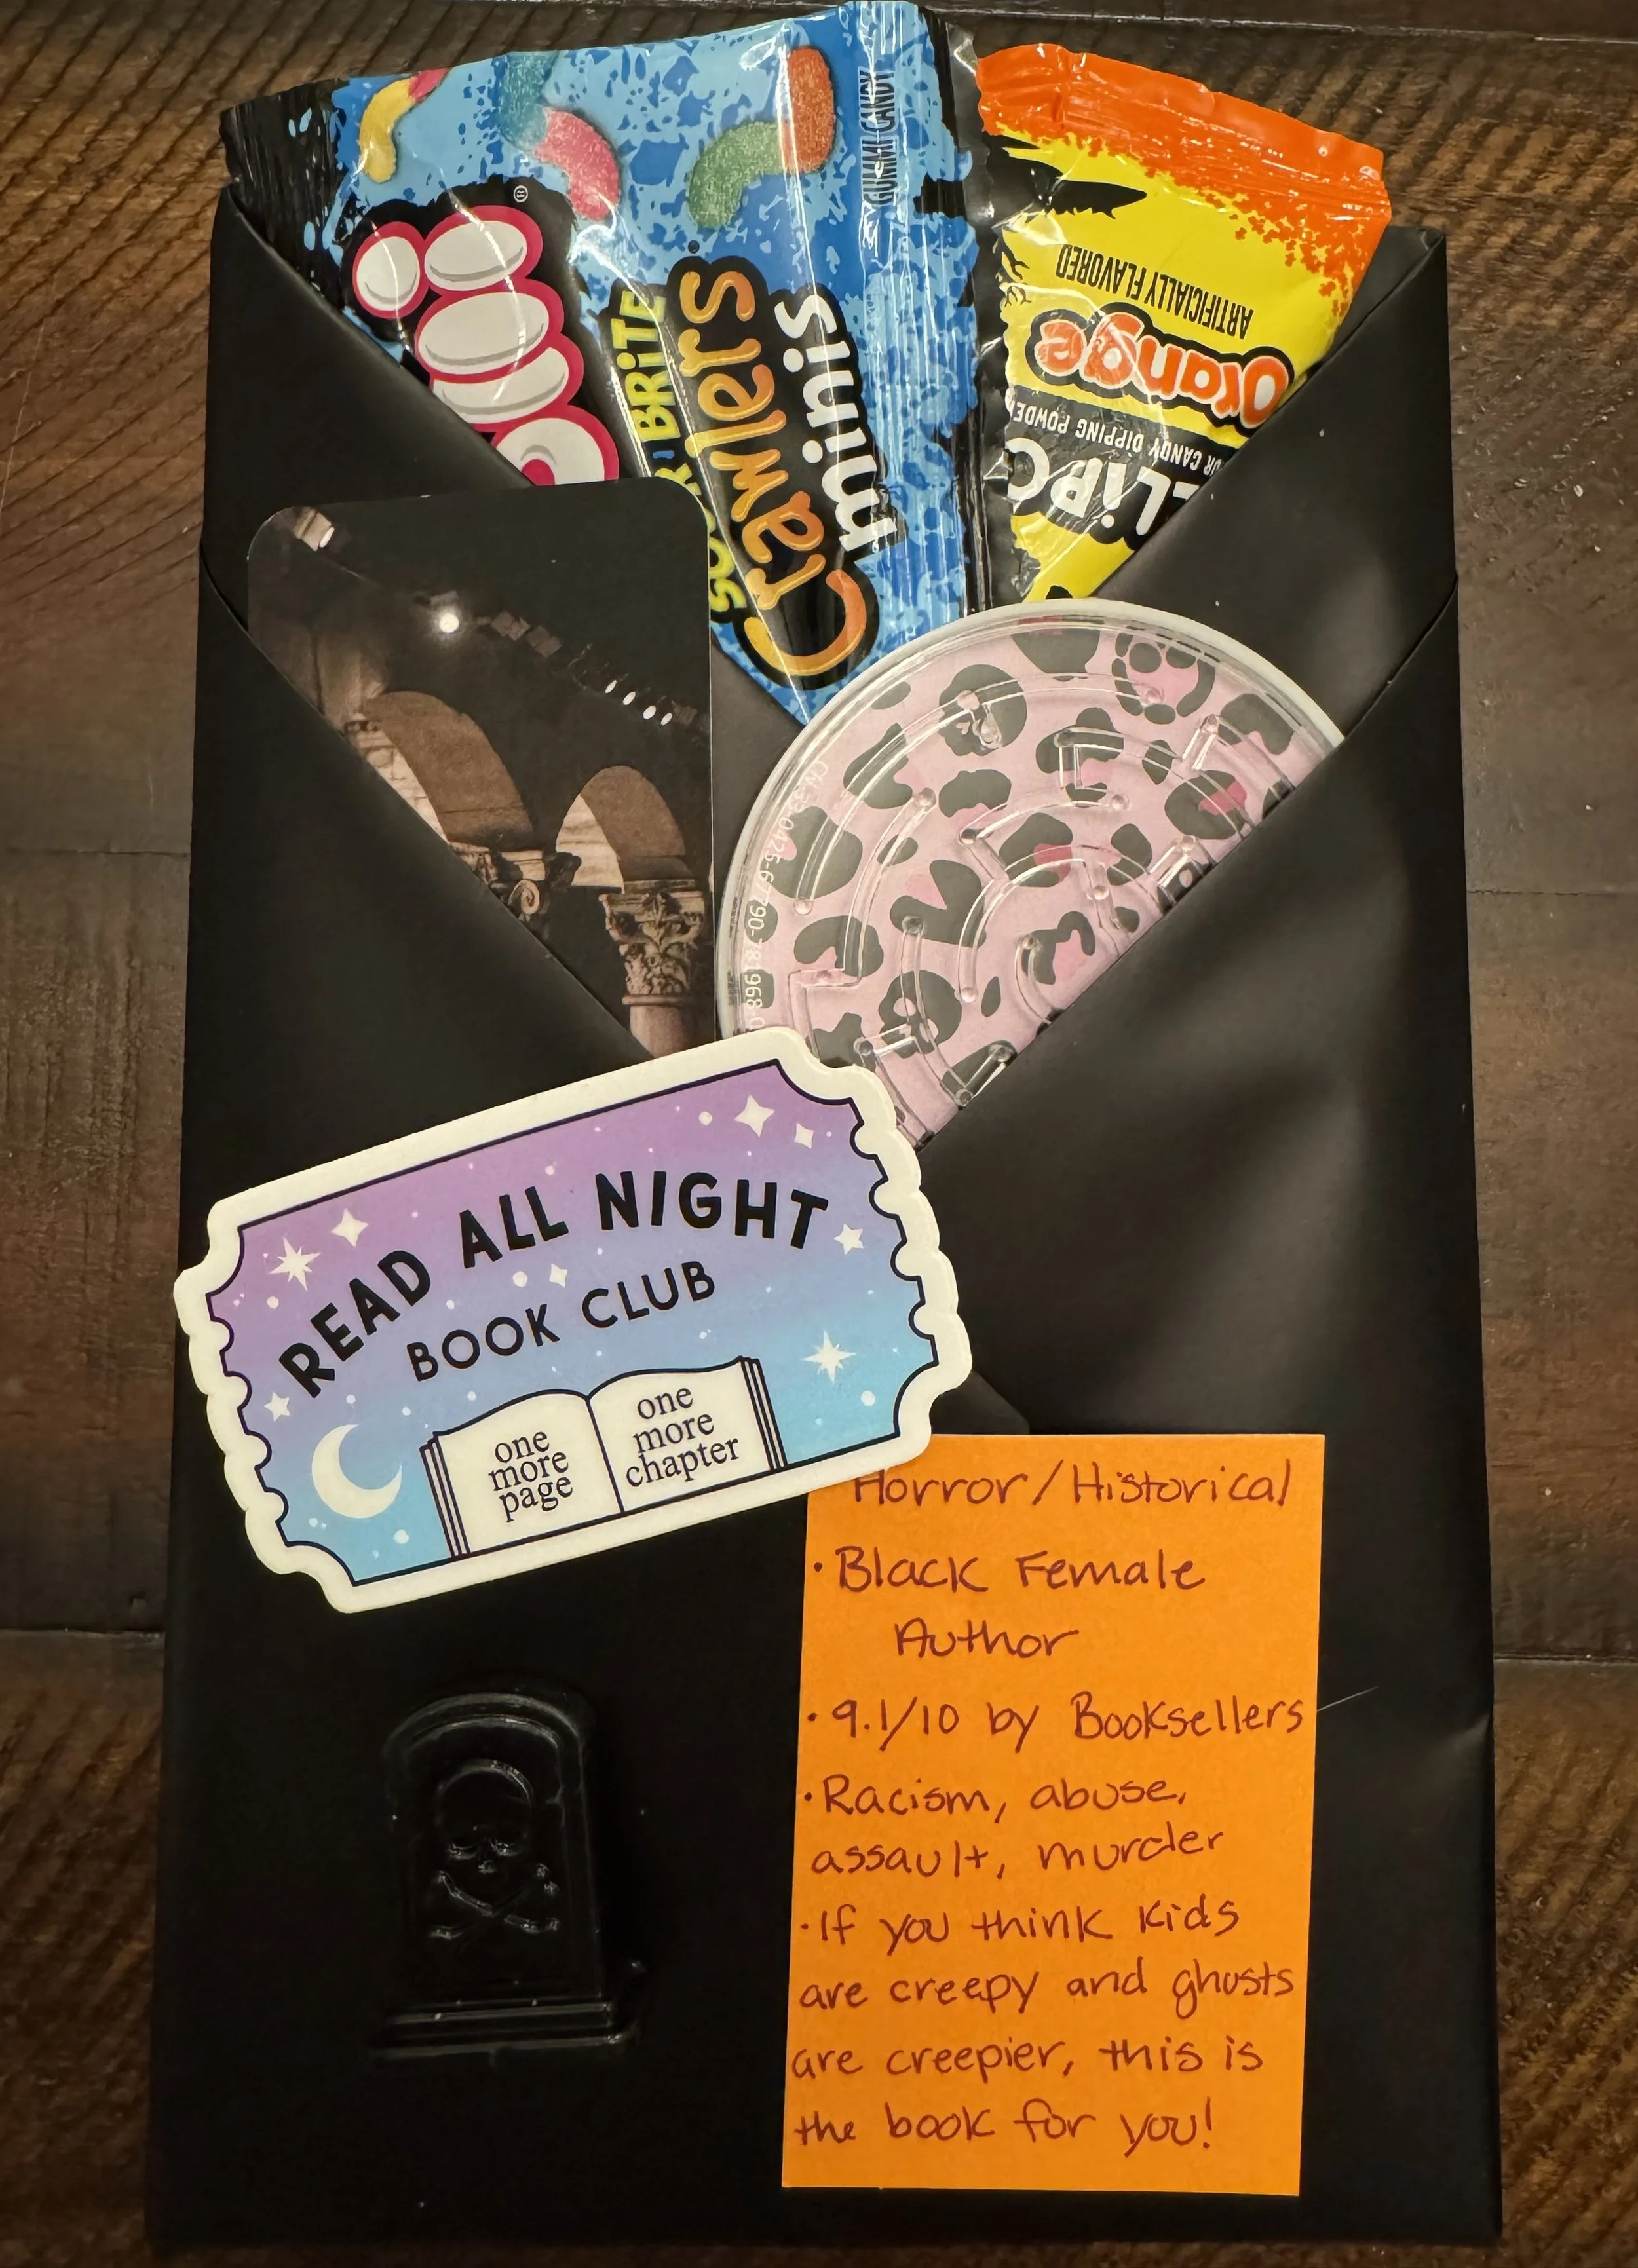 GUMMI CANDY
SOUR BRiTE
Crawlers
minis
ARTIFICIALLY FLAVORED
Orange
CANDY DIPPING POWDER
READ ALL NIGHT
BOOK CLUB
one
more
page
one
more
chapter
Horror/Historical
•Black Female
Author
•9.1/10 by Booksellers
•Racism, abuse,
assault, murder
•If you think kids
are creepy and ghosts
are creepier, this is
the book for you!